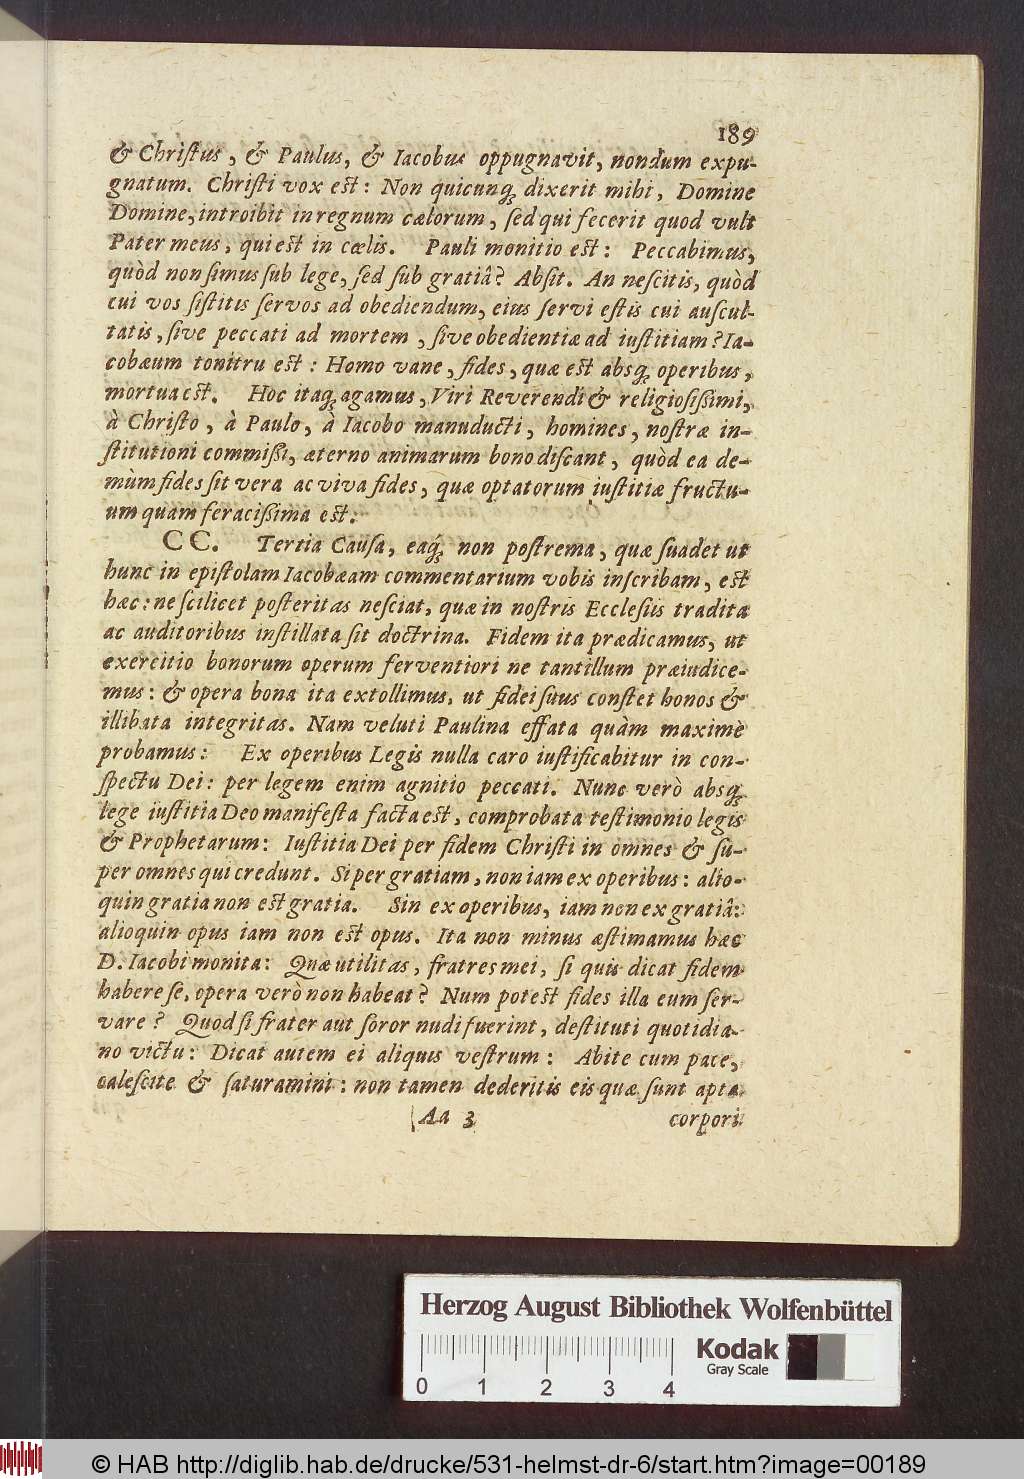 189
& Chriſtus, & Paulus, & Iacobus oppugnavit, nondum expu-
gnatum. Chriſti vox eſt: Non quicunqꝫ dixerit mihi, Domine
Domine, introibit in regnum cælorum, ſed qui fecerit quod vult
Pater meus, qui eſt in cœlis. Pauli monitio eſt: Peccabimus,
quòd non ſimus ſub lege, ſed ſub gratiâ? Abſit. An neſcitis, quòd
cui vos ſiſtitis ſervos ad obediendum, eius ſervi eſtis cui auſcul-
tatis, ſive peccati ad mortem, ſive obedientiæ ad iuſtitiam? Ia-
cobæum tonitru eſt: Homo vane, fides, quæ eſt absqꝫ operibus,
mortua eſt. Hoc itaqꝫ agamus, Viri Reverendi & religioſiſſimi,
à Chriſto, à Paulo, à Iacobo manuducti, homines, noſtræ in-
ſtitutioni commiſſi, æterno animarum bono diſcant, quòd ea de-
mùm fides ſit vera ac viva fides, quæ optatorum iuſtitiæ fructu-
um quam feraciſſima eſt.
CC. Tertia Cauſa, eaqꝫ́ non poſtrema, quæ ſuadet ut
hunc in epiſtolam Iacobæam commentarium vobis inſcribam, eſt
hæc: ne ſcilicet poſteritas neſciat, quæ in noſtris Eccleſiis tradita
ac auditoribus inſtillata ſit doctrina. Fidem ita prædicamus, ut
exercitio bonorum operum ferventiori ne tantillum præiudice-
mus: & opera bona ita extollimus, ut fidei ſuus conſtet honos &
illibata integritas. Nam veluti Paulina effata quàm maximè
probamus: Ex operibus Legis nulla caro iuſtificabitur in con-
ſpectu Dei: per legem enim agnitio peccati. Nunc verò absqꝫ
lege iuſtitia Deo manifeſta facta eſt, comprobata teſtimonio legis
& Prophetarum: Iuſtitia Dei per fidem Chriſti in omnes & ſu-
per omnes qui credunt. Si per gratiam, non iam ex operibus: alio-
quin gratia non eſt gratia. Sin ex operibus, iam non ex gratiâ:
alioquin opus iam non eſt opus. Ita non minus æſtimamus hæc
D. Iacobi monita: Quæ utilitas, fratres mei, ſi quis dicat fidem
habere ſe, opera verò non habeat? Num poteſt fides illa eum ſer-
vare? Quod ſi frater aut ſoror nudi fuerint, deſtituti quotidia-
no victu: Dicat autem ei aliquis veſtrum: Abite cum pace,
caleſcite & ſaturamini: non tamen dederitis eis quæ ſunt apta
Aa 3 corpori
Herzog August Bibliothek Wolfenbüttel
Kodak
Gray Scale
0 1 2 3 4
© HAB http://diglib.hab.de/drucke/531-helmst-dr-6/start.htm?image=00189